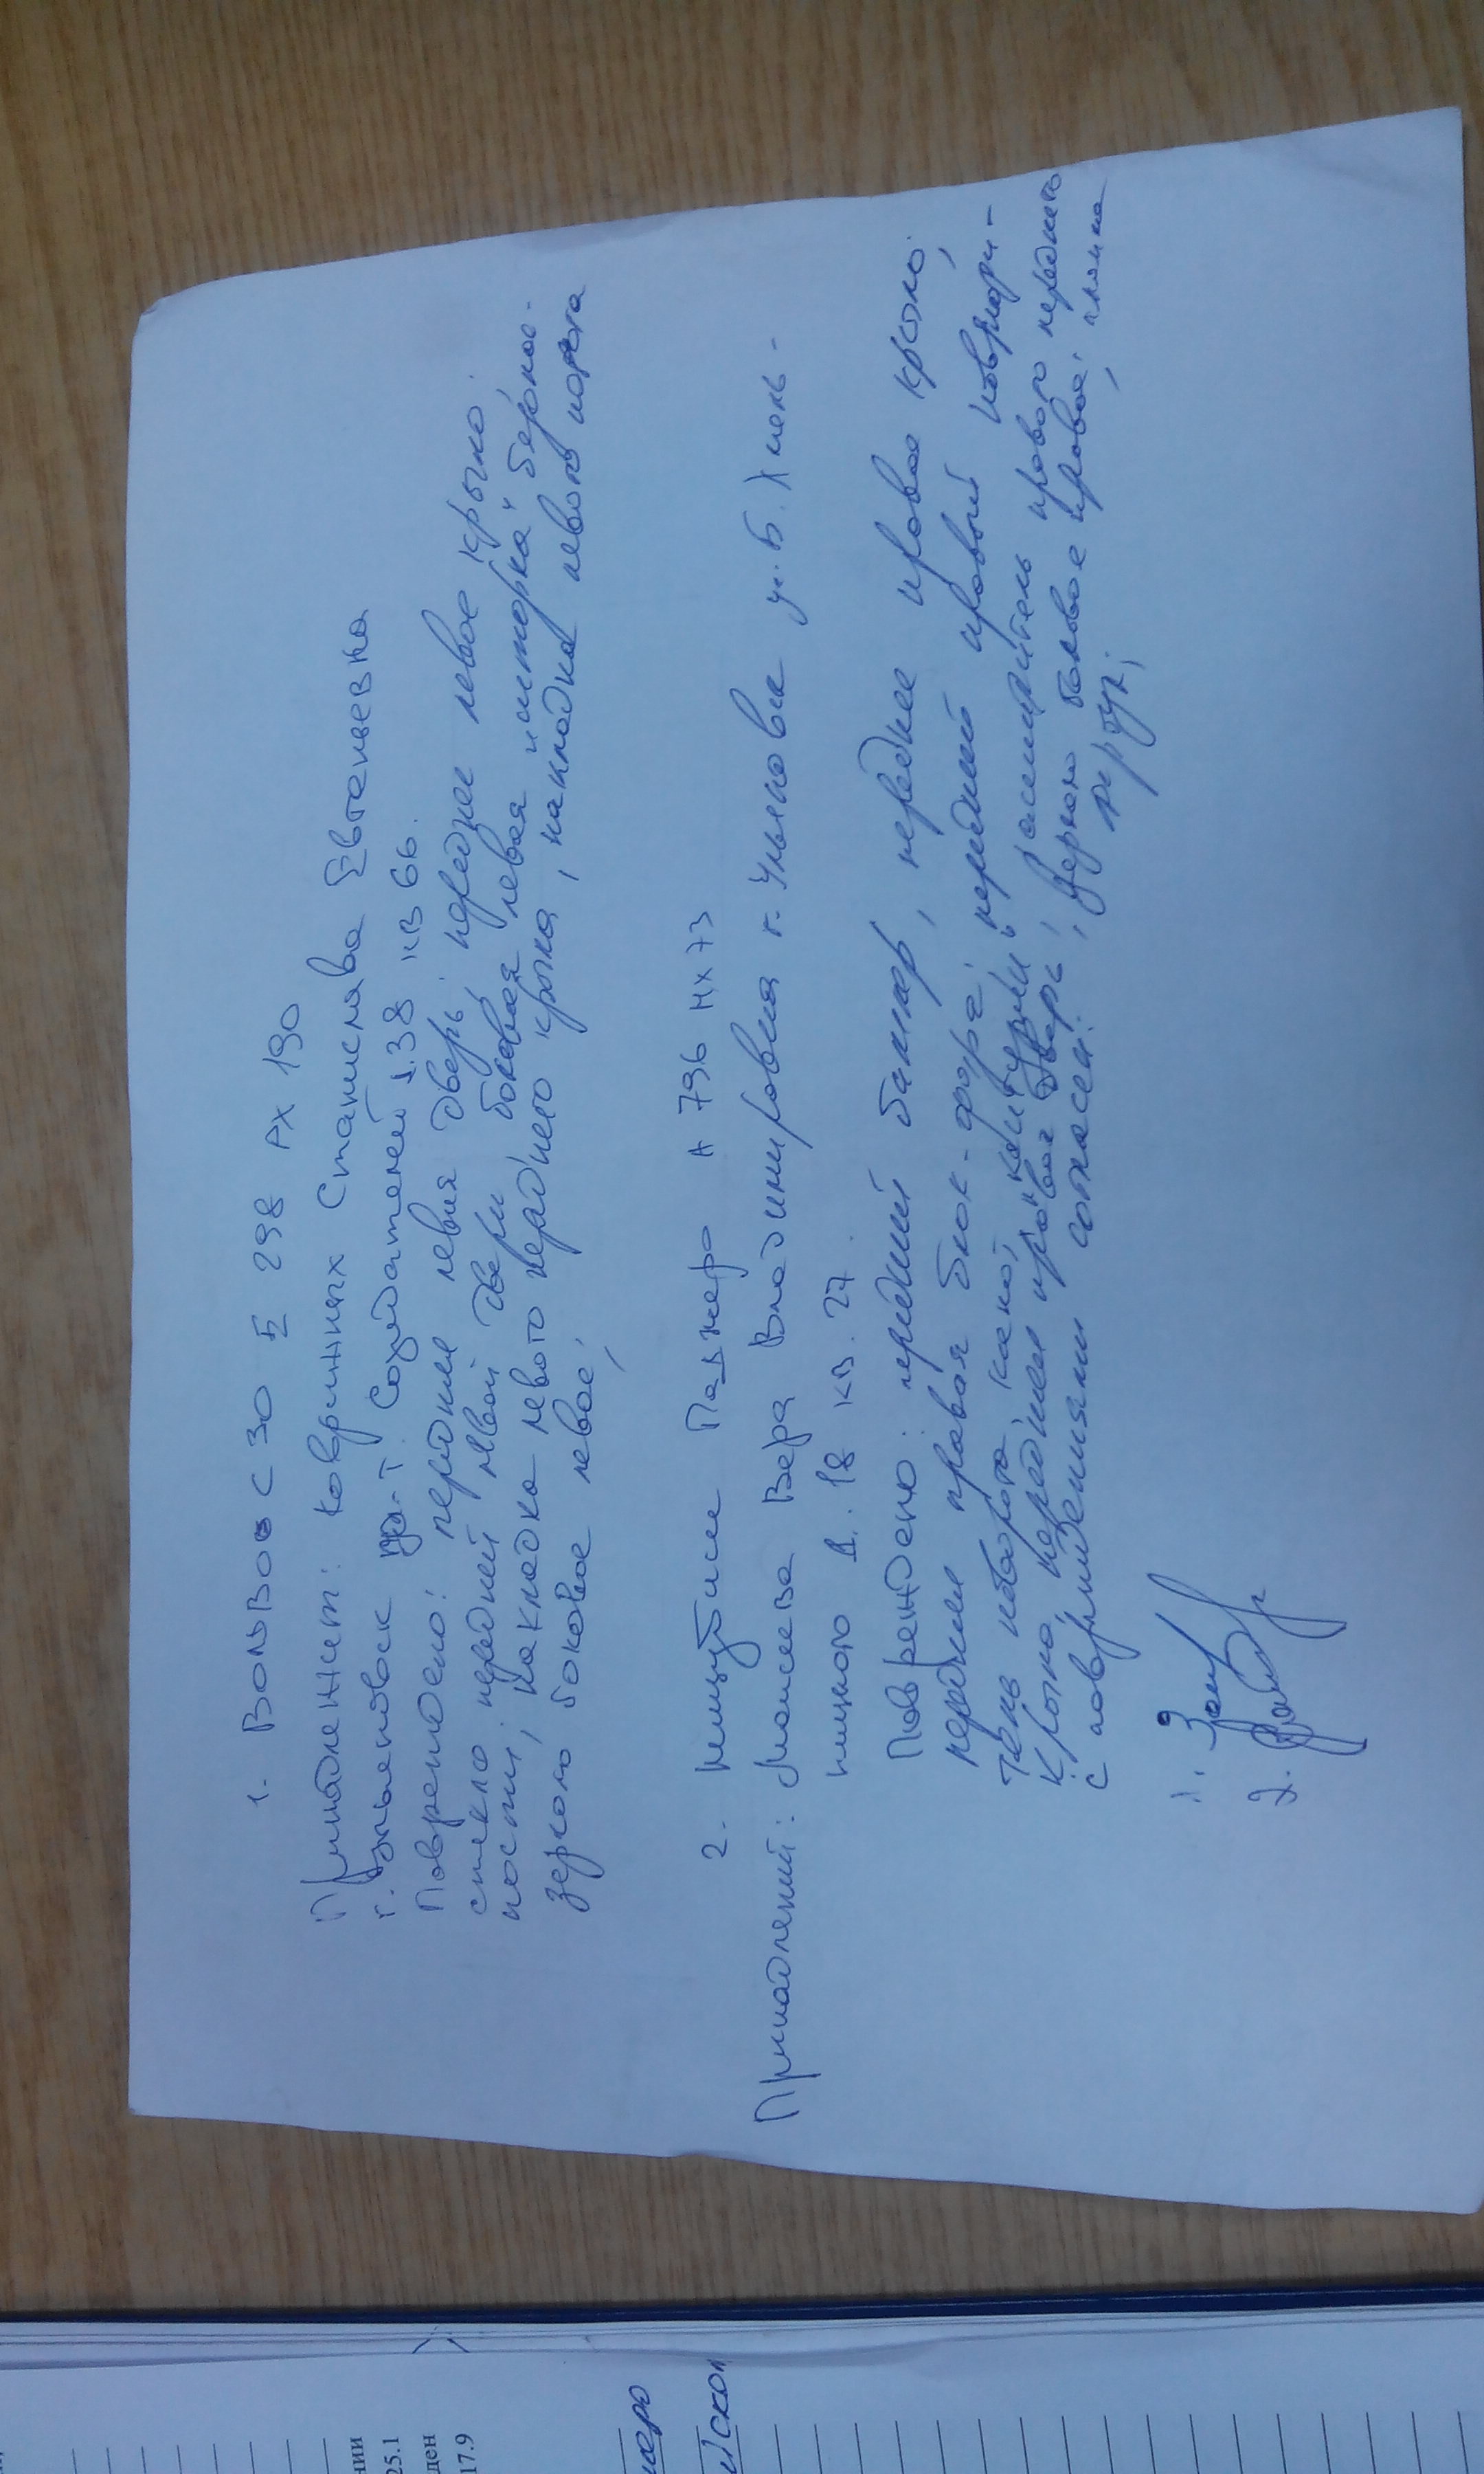 1. Вольво С 30 Е 298 РХ 190
Принадлежит: Станислава Евгеньевна
г. Ульяновск пр-т Созидателей д.38 кв 66.
Повреждено: передняя левая дверь; переднее левое крыло;
стекло передней левой двери боковая левая "шторка" безопас-
ности, накладка левого переднего крыла, накладка левого порога
зеркало боковое левое;
2. Мицубиси Паджеро А 796 МХ 73
Принадлежит: Моисеева Вера Владимировна г. Ульяновск ул. Б. Хмель-
ницкого д. 18 кв. 27.
Повреждено: передний бампер, переднее правое крыло;
передняя правая блок-фара; передний правый повтори-
тель поворота; передний расширитель правого переднего
крыла, передняя правая дверь; зеркало боковое правое;
с повреждениями согласен.
1.
2.
нии
25.1
ден
17.9